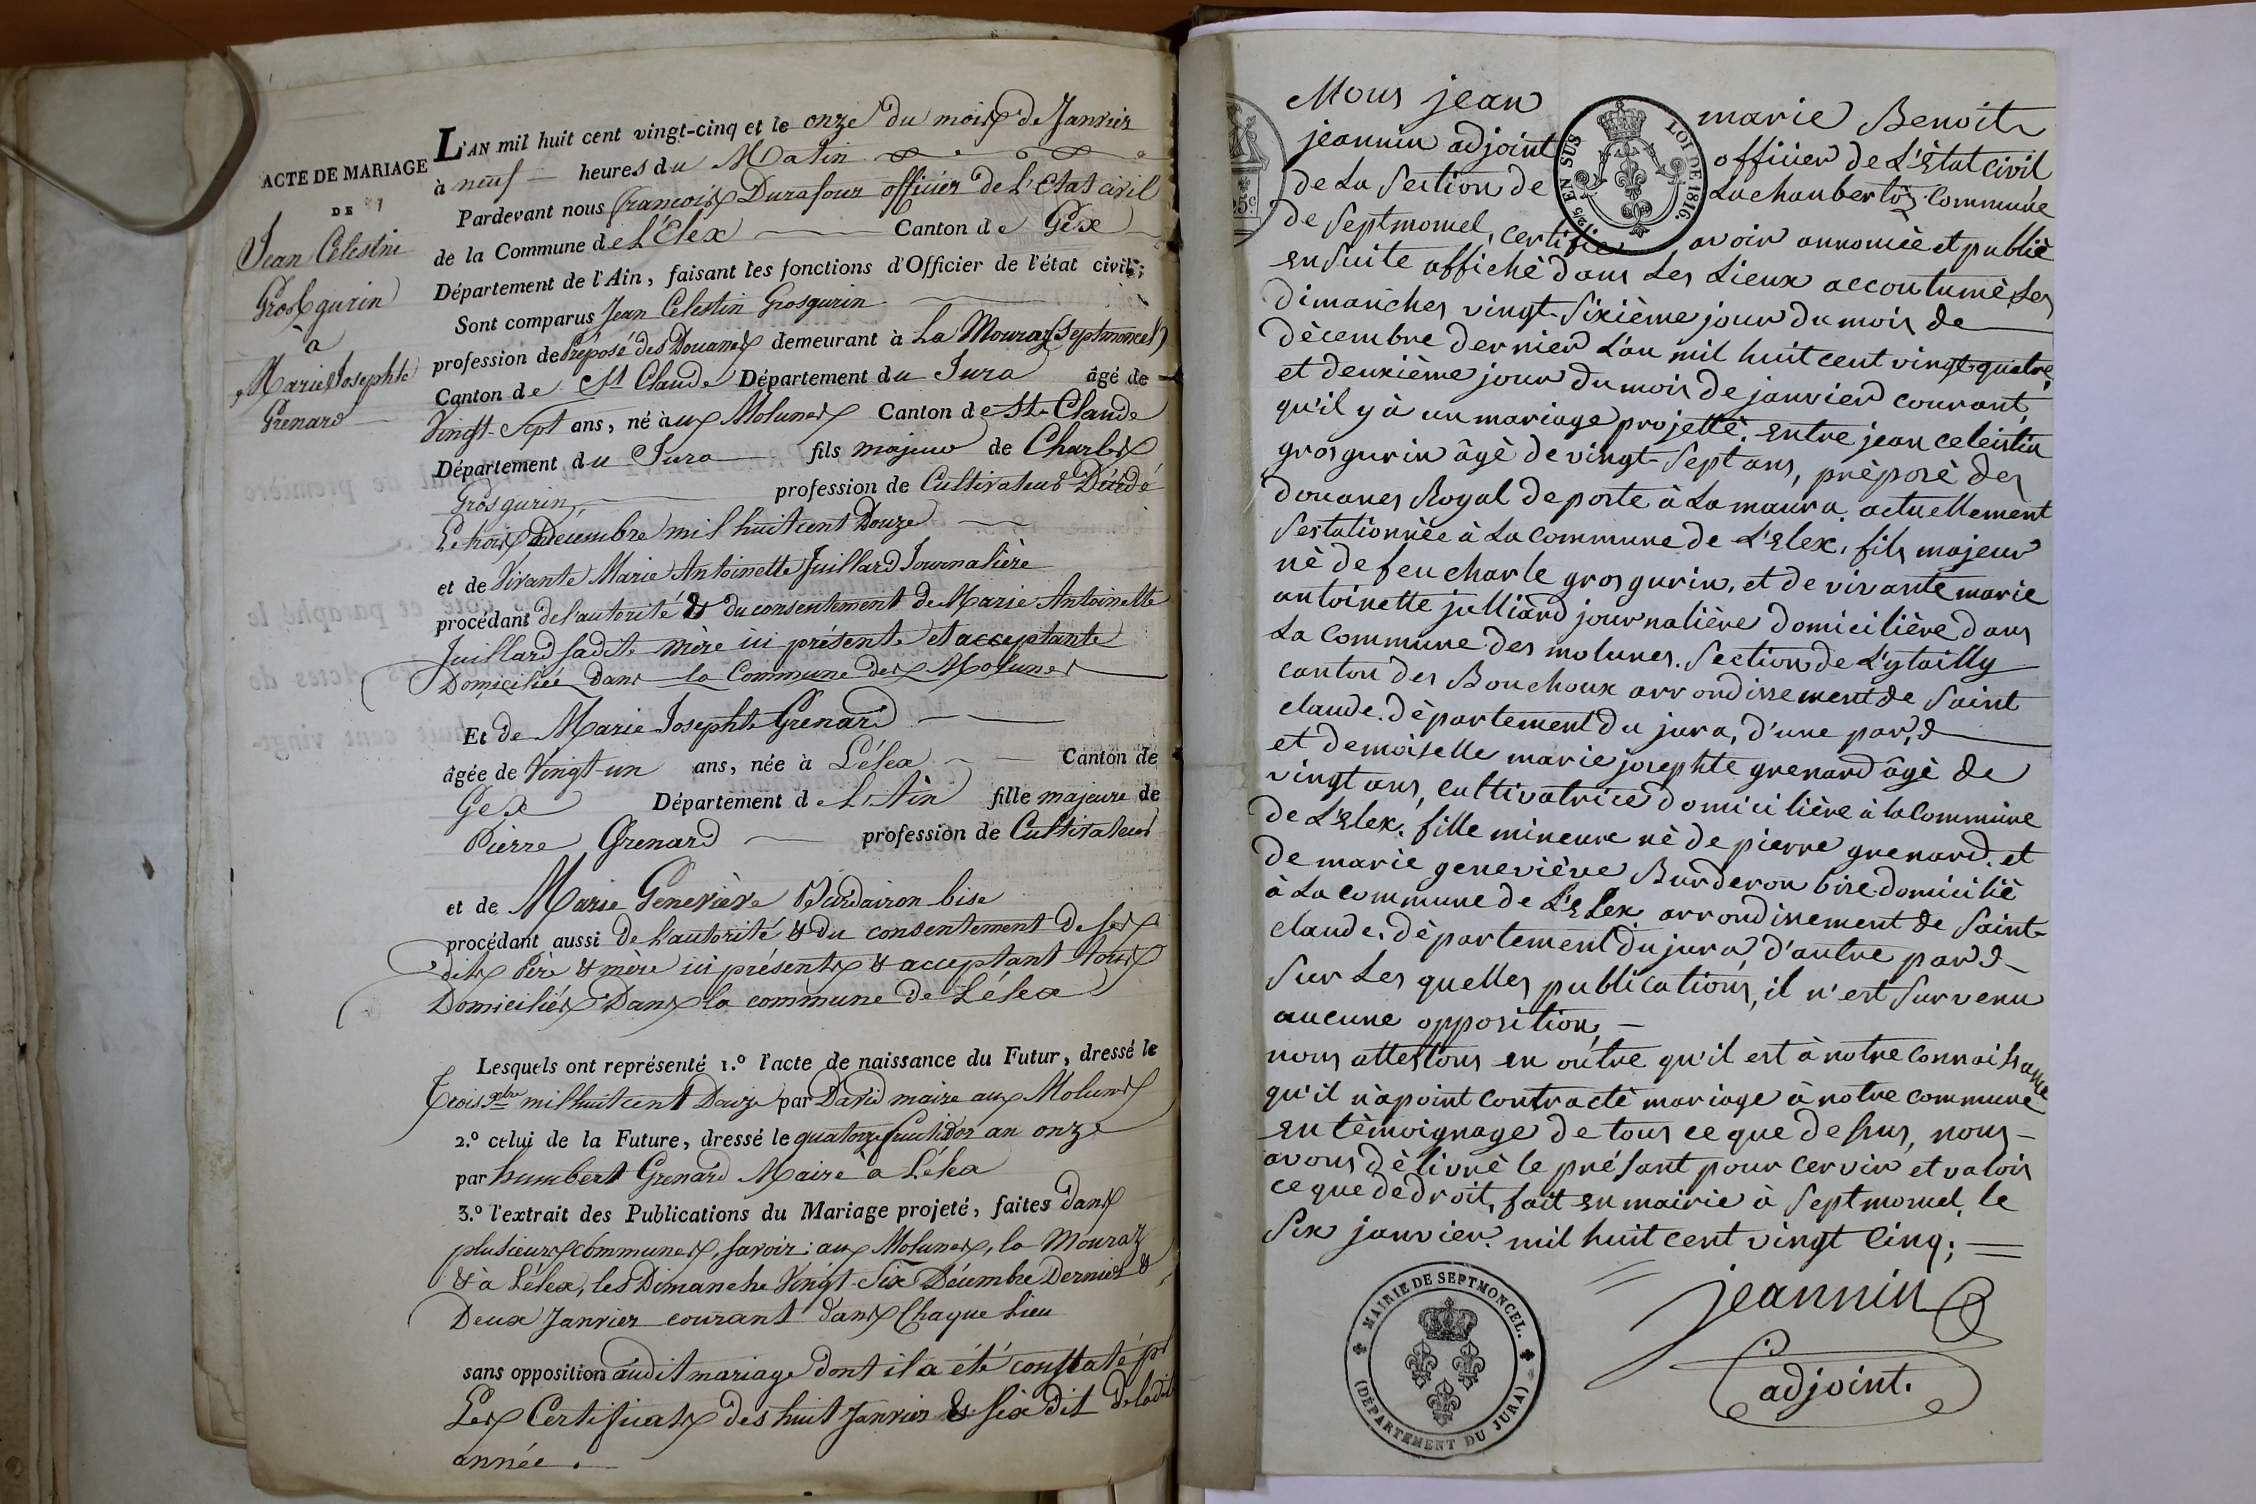 ACTE DE MARIAGE
DE
Jean Célestin
Grosgurin
à
Marie Josephte
Grenard
L'AN mil huit cent vingt-cinq et le onze du mois de Janvier
à neuf heures du Matin
Pardevant nous François Durafour officier de l'Etat civil
de la Commune de L'Elex Canton de Gex
Département de l'Ain, faisant les fonctions d'Officier de l'état civil;
Sont comparus Jean Célestin Grosgurin
profession de Préposé des Douanes demeurant à La Mouraz (Septmoncel)
Canton de St Claude Département du Jura âgé de
Vingt-Sept ans, né aux Molunes Canton de St Claude
Département du Jura fils majeur de Charles
Grosgurin, profession de Cultivateur Décédé
Le trois Décembre mil huit cent Douze
et de Vivante Marie Antoinette Juillard Journalière
procédant de l'autorité & du consentement de Marie Antoinette
Juillard sadite mère ici présente et acceptante
Domiciliée dans la Commune des Molunes
Et de Marie Josephte Grenard
âgée de Vingt-un ans, née à Lélex Canton de
Gex Département de L'Ain fille majeure de
Pierre Grenard profession de Cultivateur
et de Marie Genevière Burdairon bise
procédant aussi de l'autorité & du consentement de ses
dits Père & mère ici présents & acceptant tous
Domiciliés Dans la commune de Lélex
Lesquels ont représenté 1.° l'acte de naissance du Futur, dressé le
Trois Xbre mil huit cent Douze par David maire aux Molunes
2.° celui de la Future, dressé le quatorze fructidor an onze
par humbert Grenard Maire à Lélex
3.° l'extrait des Publications du Mariage projeté, faites dans
plusieurs communes, savoir: aux Molunes, la Mouraz
& à Lélex, les Dimanche Vingt-Six Décembre Dernier &
Deux Janvier courant dans Chaque Lieu
sans opposition audit mariage dont il a été constaté pr
Les Certificats des huit Janvier & six dit de ladite
année.
Nous jean marie Benoit
jeannin adjoint officier de L'Etat civil
de La Section de Lachaubertoz Commune
de Septmomel, certifie avoir annoncé et publiè
ensuite affichè dans Les Lieux accoutumè Les
dimanches vingt-Sixième jour du mois de
dècembre dernier L'an mil huit cent vingt-quatre,
et deuxième jour du mois de janvier courant,
qu'il y à un mariage projettè. entre jean celeistin
grosgurin âgè de vingt-Sept ans, prèposè des
douanes Royal de poste à La maura. actuellement
Sestationnèe à La commune de L'Elex, fils majeur
nè de feu charle grosgurin, et de vivante marie
antoinette julliard journalière domicilière dans
La commune des molunes. Section de L'ytailly
canton des Bouchoux arrondissement de Saint
claude. dèpartement du jura, d'une pard
et demoiselle marie josephte grenard âgè de
vingt ans, cultivatrice domicilière à la commune
de L'Elex. fille mineure nè de pierre grenard. et
de marie geneviève Burderon bise domiciliè
à La commune de L'Elex arrondissement de Saint-
claude. dèpartement du jura d'autre pard
Sur Les quelles publications, il n'est Survenu
aucune opposition,
nous attestons en oùtre qu'il est à notre connaissance
qu'il n'à point contractè mariage à notre commune
en tèmoignage de tous ce que dessus, nous
avons dèlivrè le prèsant pour cervir et valoir
ce que de droit, fait en mairie à Septmomel, le
Six janvier. mil huit cent vingt Cinq;
jeannin
adjoint.
LOI DE 1816.
EN SUS
MAIRIE DE SEPTMONCEL.
(DÉPARTEMENT DU JURA)